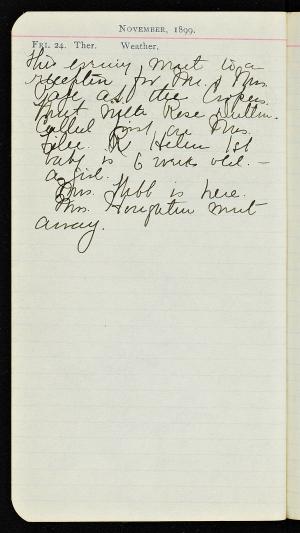 NOVEMBER, 1899.
FRI. 24. Ther. Weather.
This evening went to a
reception for Mr. & Mrs.
Page at the
Went with Rose
Called first on Mrs.
Helen 1st
baby is 6 weeks old. —
a girl.
Mrs. is here.
Mrs. Houghton went
away.